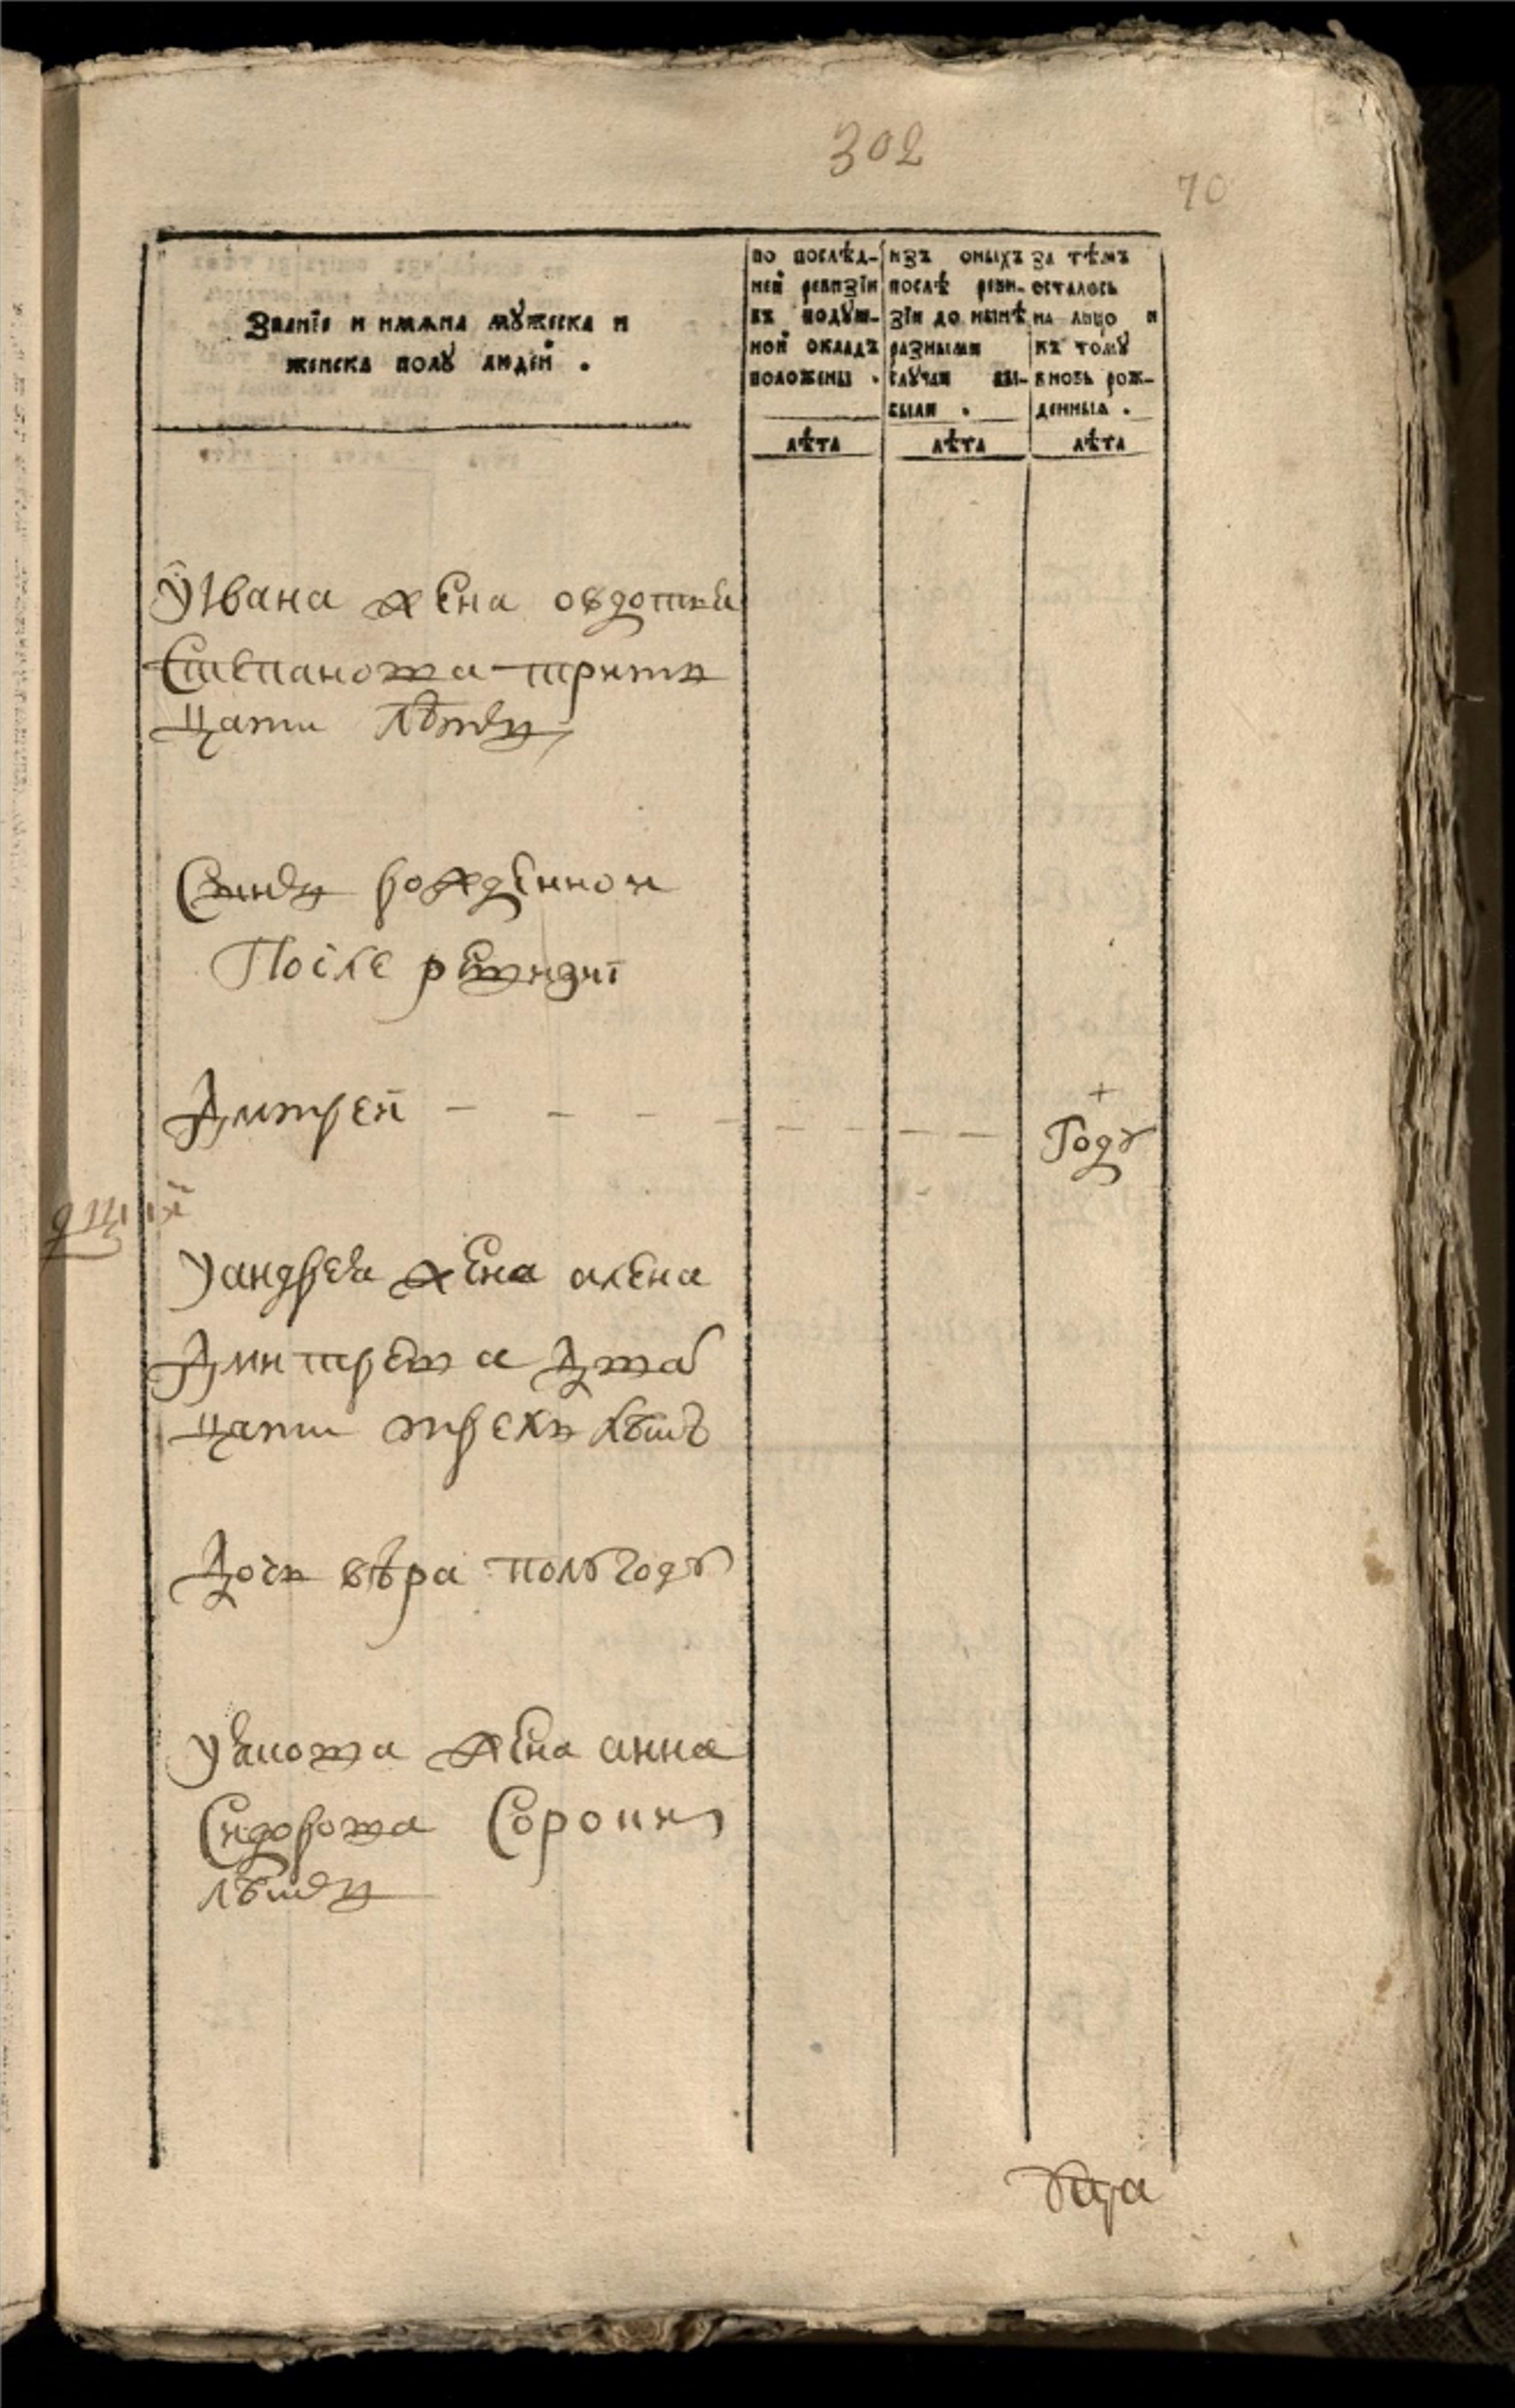 302
70
Званїе и имѧна мꙋжеска и
женска полꙋ людей .
по послѣд-
ней ревизїи
въ подꙋш-
ной окладъ
положены .
изъ оныхъ
послѣ реви-
зїи до нынѣ
разными
слꙋчаи вы-
были .
за тѣмъ
осталось
на лицо и
къ томꙋ
вновь рож-
денныѧ .
лѣта лѣта лѣта
У Ивана жена овдотья
Степанова трит
цати лѣтъ
Сынъ рожденной
После ревизиї
Дмитрей - - - - - - Годꙋ
У андрея жена алена
Дмитрева дват
цати трехъ лѣтъ
Дочь вѣра полꙋгодꙋ
жена анна
Сидорова Сороки
лѣтъ